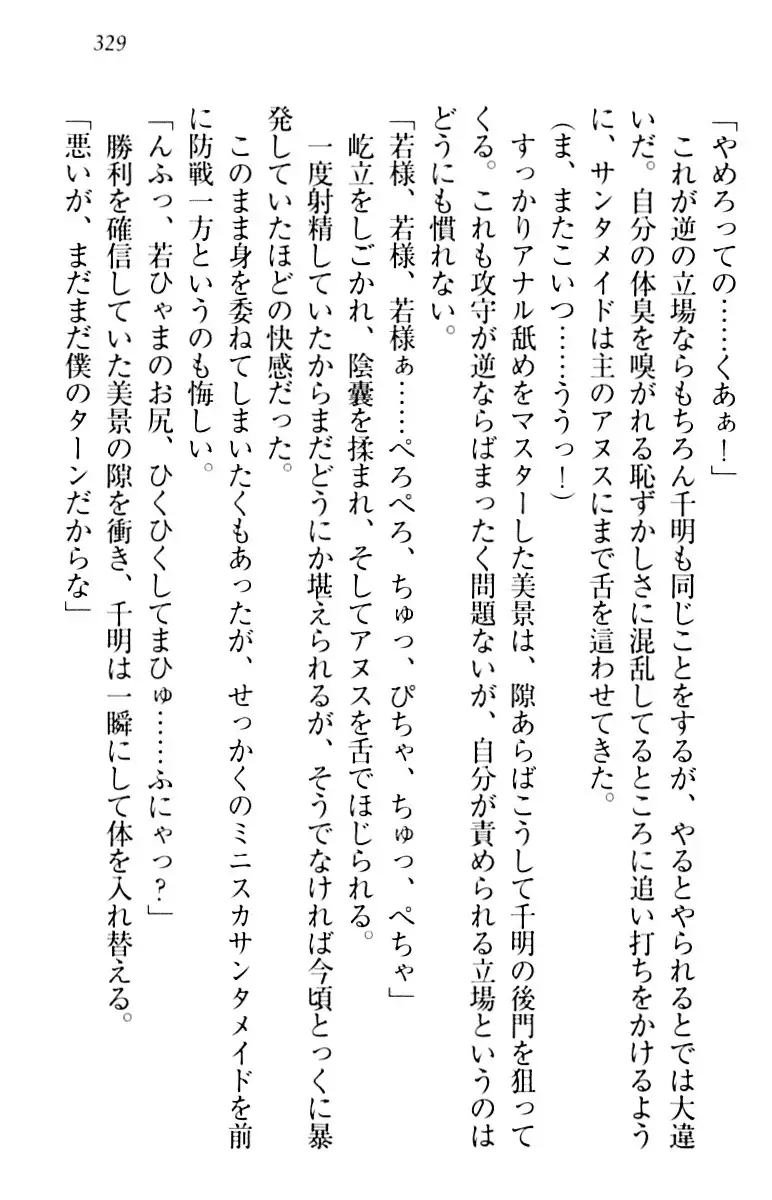 329
「やめろっての……くあぁ！」
これが逆の立場ならもちろん千明も同じことをするが、やるとやられるとでは大違
いだ。自分の体臭を嗅がれる恥ずかしさに混乱してるところに追い打ちをかけるよう
に、サンタメイドは主のアヌスにまで舌を這わせてきた。
（ま、またこいつ……ううっ！）
すっかりアナル舐めをマスターした美景は、隙あらばこうして千明の後門を狙って
くる。これも攻守が逆ならばまったく問題ないが、自分が責められる立場というのは
どうにも慣れない。
「若様、若様、若様ぁ……ぺろぺろ、ちゅっ、ぴちゃ、ちゅっ、ぺちゃ」
屹立をしごかれ、陰嚢を揉まれ、そしてアヌスを舌でほじられる。
一度射精していたからまだどうにか堪えられるが、そうでなければ今頃とっくに暴
発していたほどの快感だった。
このまま身を委ねてしまいたくもあったが、せっかくのミニスカサンタメイドを前
に防戦一方というのも悔しい。
「んふっ、若ひゃまのお尻、ひくひくしてまひゅ……ふにゃっ？」
勝利を確信していた美景の隙を衝き、千明は一瞬にして体を入れ替える。
「悪いが、まだまだ僕のターンだからな」